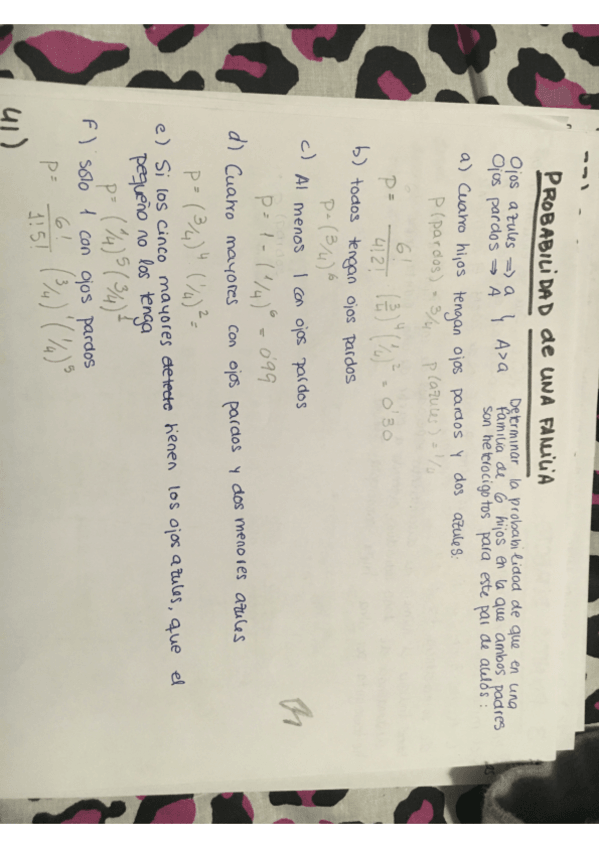 PROBABILIDAD de UNA FAMILIA
Ojos azules => a } A>a
Ojos pardos => A
Determinar la probabilidad de que en una
familia de 6 hijos en la que ambos padres
son heterocigotos para este par de alelos:
a) Cuatro hijos tengan ojos pardos y dos azules:
P(pardos) = 3/4 P(azules) = 1/4
P = 6!/4!2! (3/4)^4 (1/4)^2 = 0'30
b) todos tengan ojos pardos
P = (3/4)^6
c) Al menos 1 con ojos pardos
P = 1 - (1/4)^6 = 0'99
d) Cuatro mayores con ojos pardos y dos menores azules
P = (3/4)^4 (1/4)^2 =
e) Si los cinco mayores tienen los ojos azules, que el
pequeño no los tenga
P = (1/4)^5 (3/4)^1
f) solo 1 con ojos pardos
P = 6!/1!5! (3/4)^1 (1/4)^5
41)